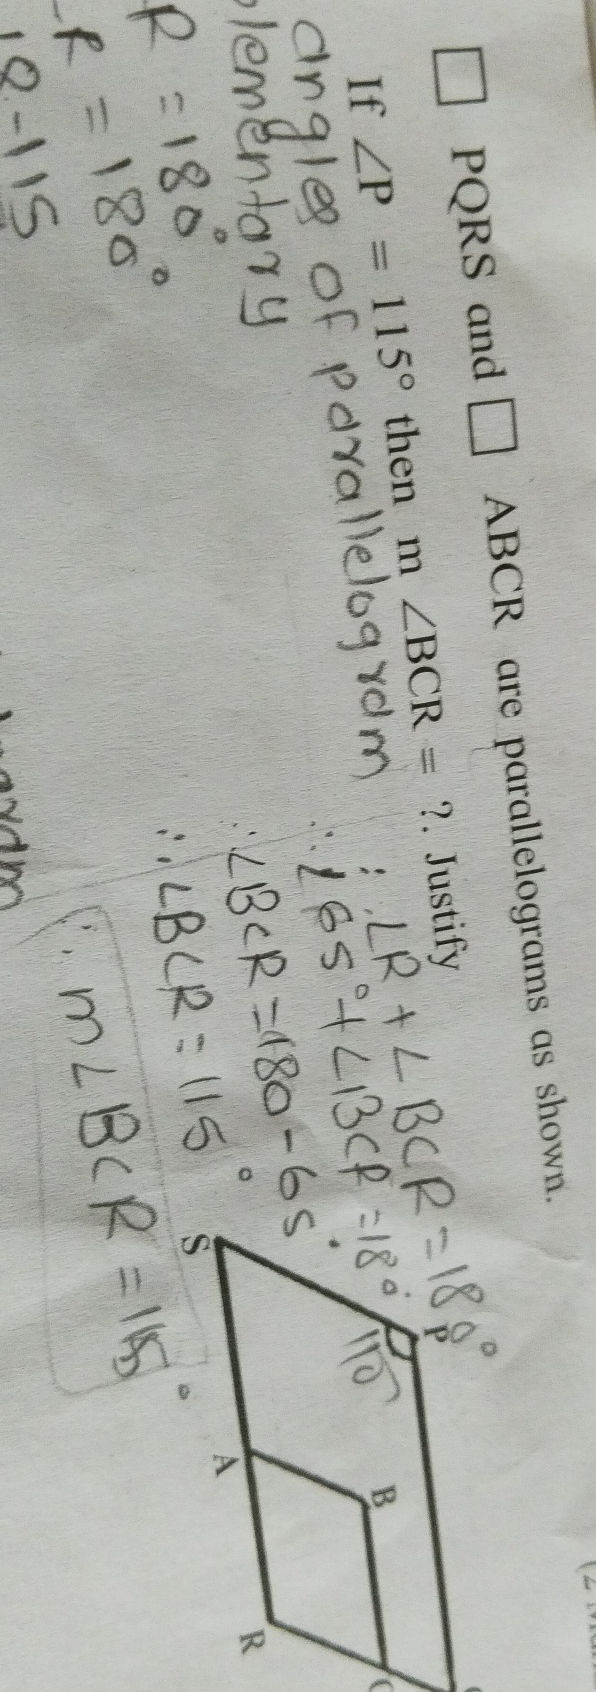 □ PQRS and □ ABCR are parallelograms as shown.
If ∠P = 115° then m ∠BCR = ?. Justify
angles of parallelogram
R = 180°
R = 180°
∴ ∠R + ∠BCR = 180°
∴ ∠65° + ∠BCR = 18°
∴ ∠BCR = 180 - 65
∴ ∠BCR = 115°
∴ m∠BCR = 115°
P
115
S
A
B
R